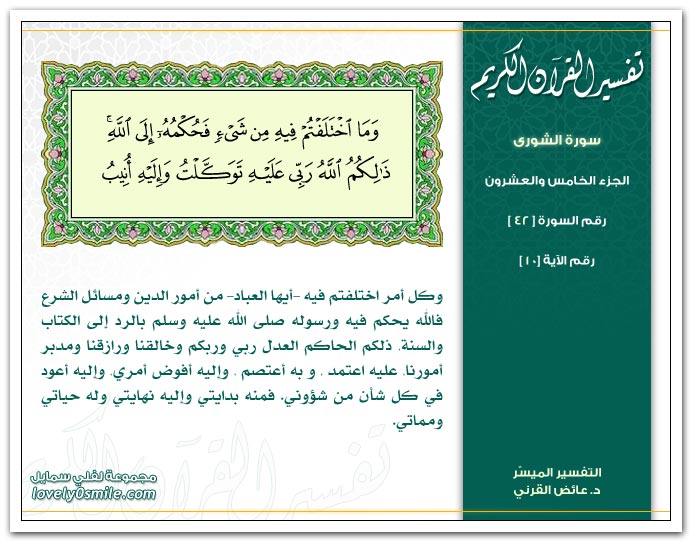 تفسير القرآن الكريم
سورة الشورى
الجزء الخامس والعشرون
رقم السورة [٤٢]
رقم الآية [١٠]
وَمَا ٱخْتَلَفْتُمْ فِيهِ مِن شَىْءٍ فَحُكْمُهُۥٓ إِلَى ٱللَّهِ ۚ
ذَٰلِكُمُ ٱللَّهُ رَبِّى عَلَيْهِ تَوَكَّلْتُ وَإِلَيْهِ أُنِيبُ
وكل أمر اختلفتم فيه -أيها العباد- من أمور الدين ومسائل الشرع
فالله يحكم فيه ورسوله صلى الله عليه وسلم بالرد إلى الكتاب
والسنة. ذلكم الحاكم العدل ربي وربكم وخالقنا ورازقنا ومدبر
أمورنا. عليه اعتمد . و به أعتصم . وإليه أفوض أمري. وإليه أعود
في كل شأن من شؤوني. فمنه بدايتي وإليه نهايتي وله حياتي
ومماتي.
تفسير القرآن الكريم
التفسير الميسّر
د. عائض القرني
مجموعة لفلي سمايل
lovely0smile.com